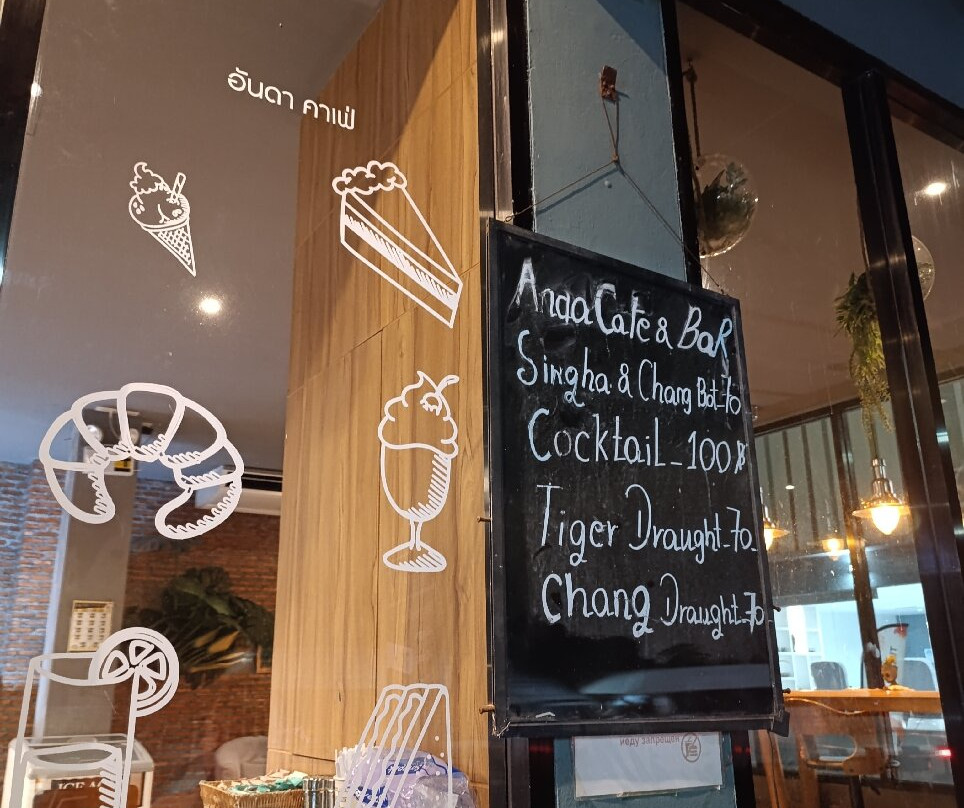 อันดา คาเฟ่
Anda Cafe & BaR
Singha & Chang Bot-70
Cocktail-100฿
Tiger Draught-70-
Chang Draught-70-
еду запрещен
ICE